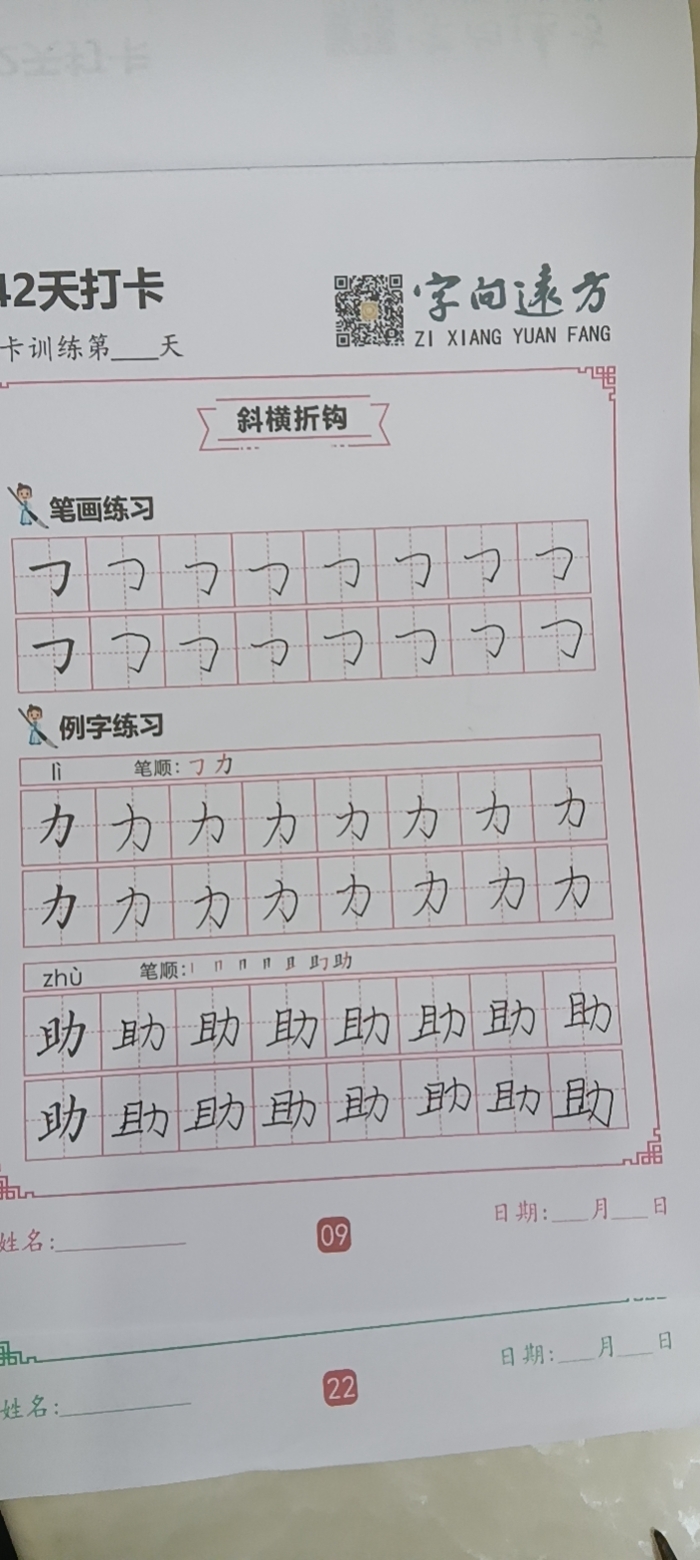 42天打卡
字向遠方
ZI XIANG YUAN FANG
卡训练第____天
斜横折钩
笔画练习
㇆ ㇆ ㇆ ㇆ ㇆ ㇆ ㇆ ㇆
㇆ ㇆ ㇆ ㇆ ㇆ ㇆ ㇆ ㇆
例字练习
lì 笔顺: ㇆ 力
力 力 力 力 力 力 力 力
力 力 力 力 力 力 力 力
zhù 笔顺: 助
助 助 助 助 助 助 助 助
助 助 助 助 助 助 助 助
姓名:__________ 09 日期:___月___日
姓名:__________ 22 日期:___月___日